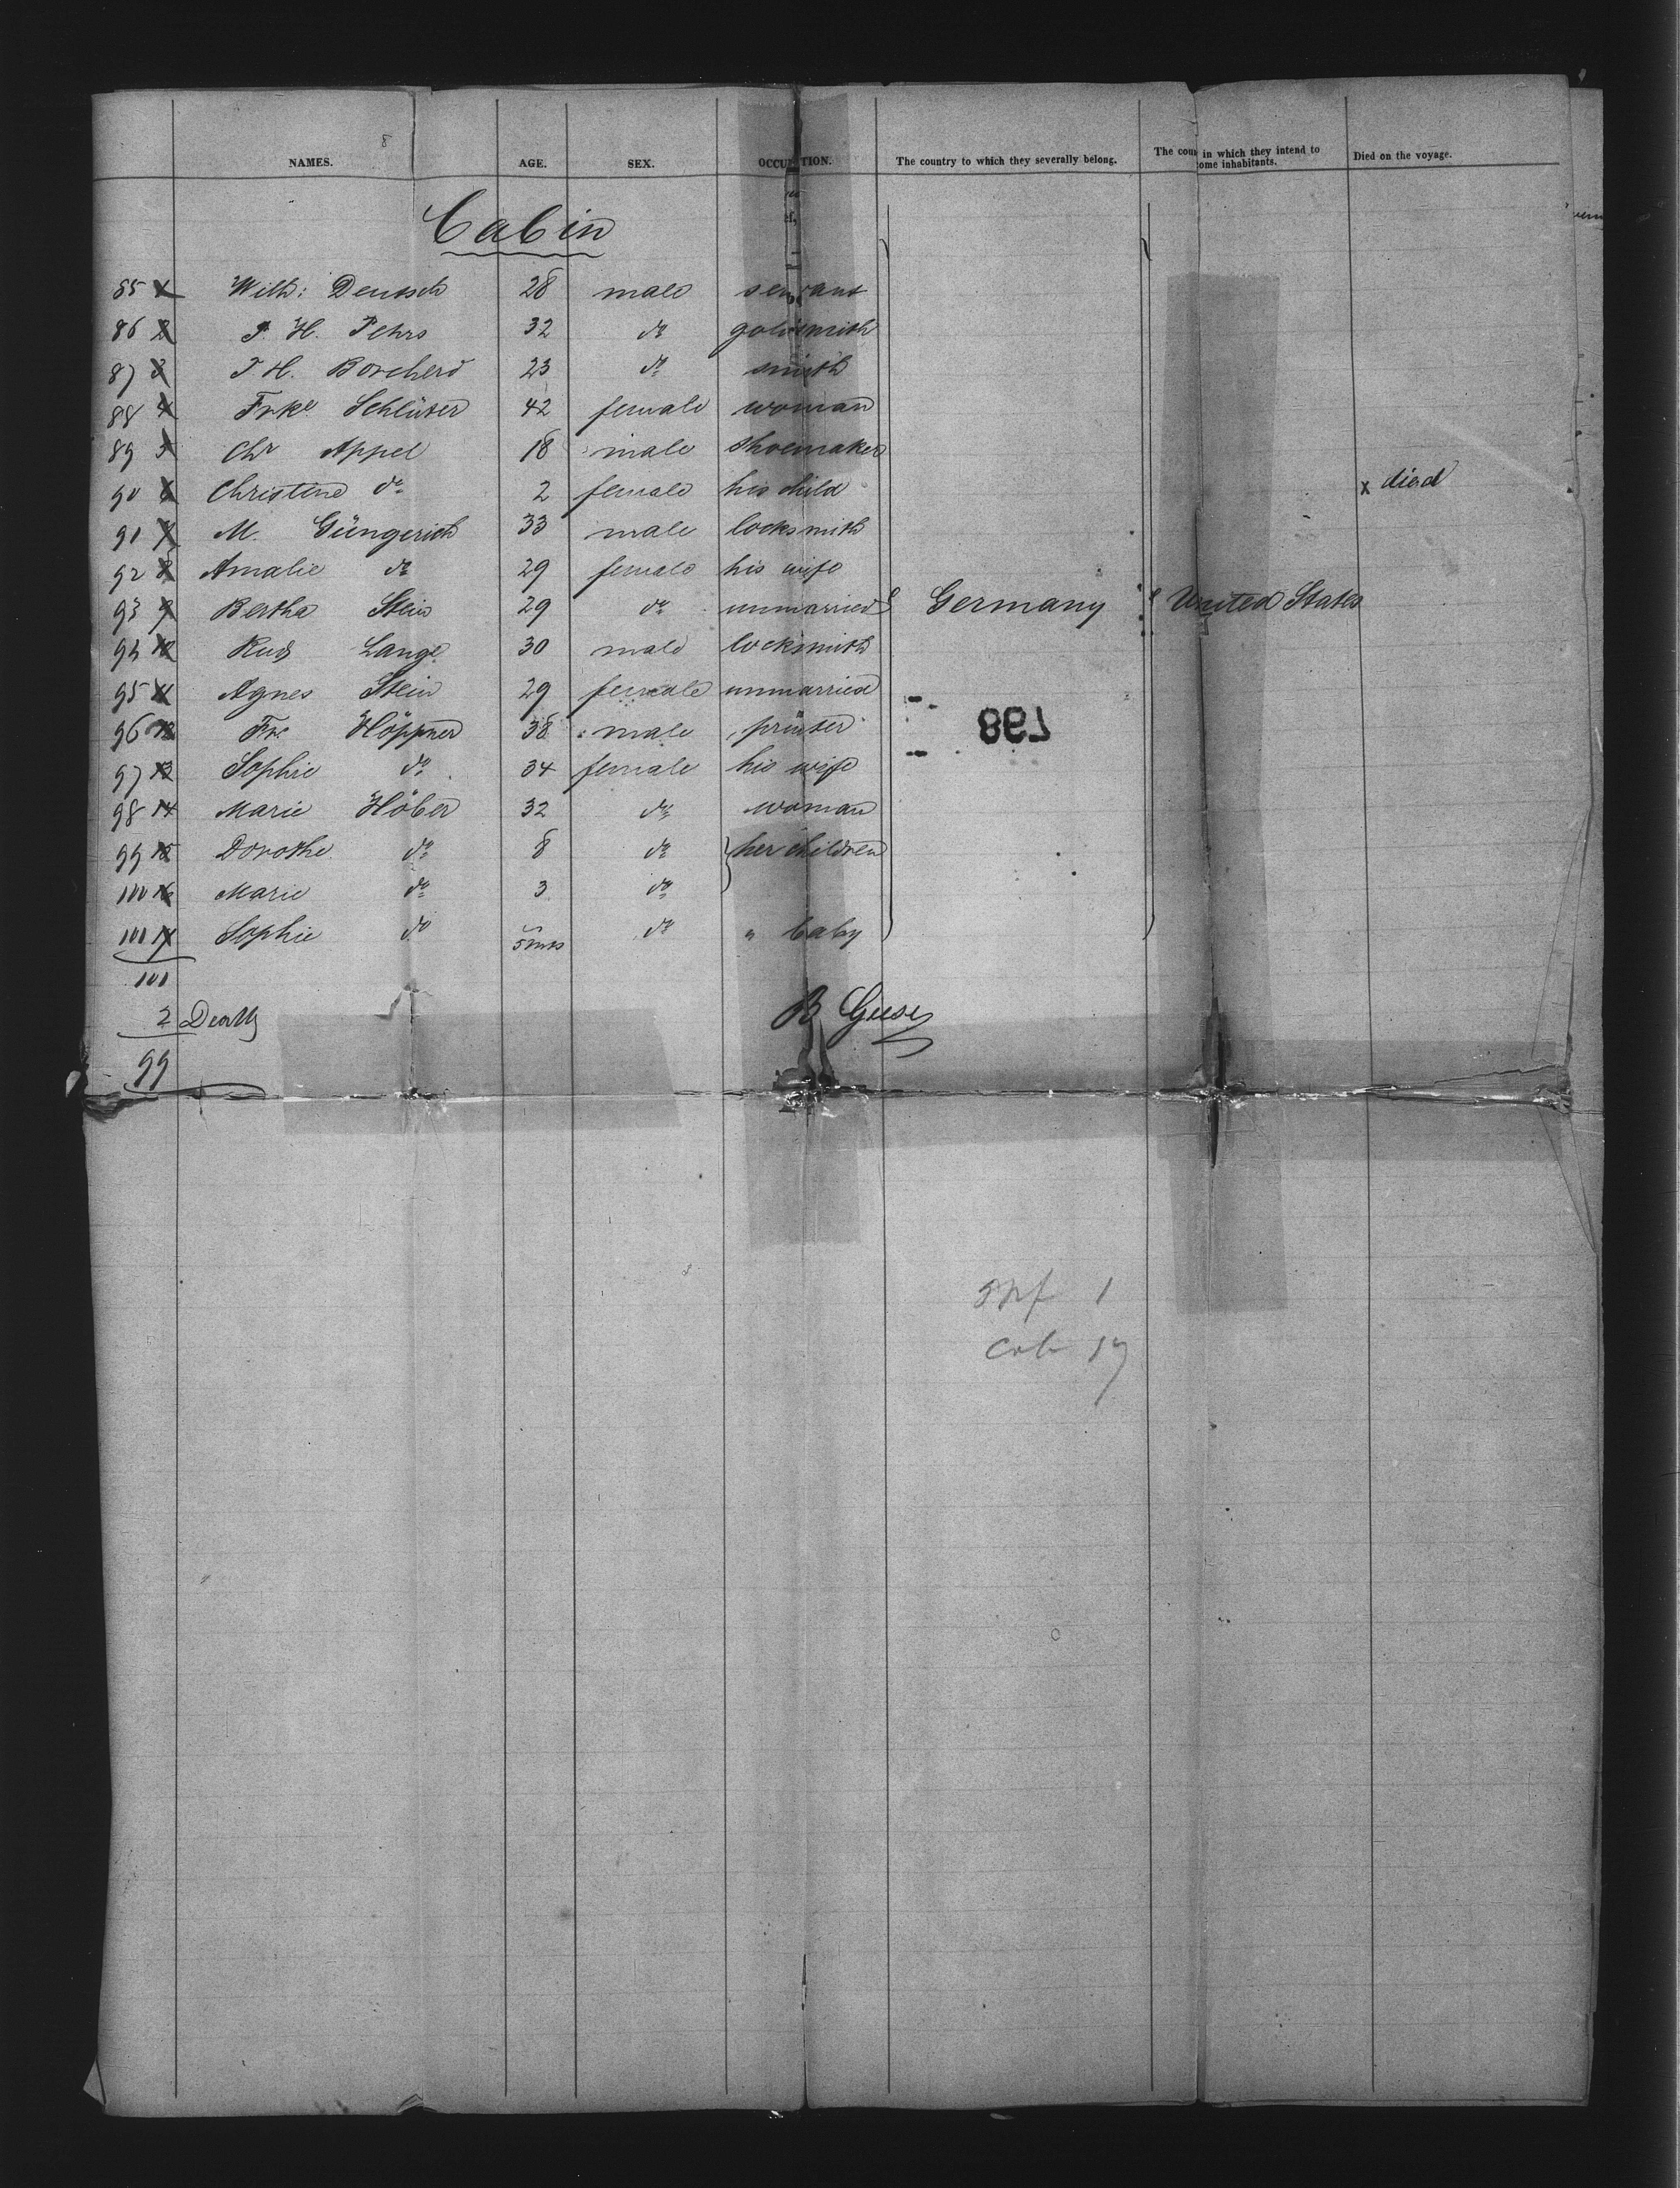 NAMES. AGE. SEX. OCCUPATION. The country to which they severally belong. The coun in which they intend to ome inhabitants. Died on the voyage.
Cabin
85 1 Wilh: Deutsch 28 male servant
86 2 P. H. Pehrs 32 do goldsmith
87 3 J. H. Borcherd 23 do smith
88 4 Frke Schlüter 42 female woman
89 5 Chr Appel 18 male shoemaker
90 6 Christine do 2 female his child x died
91 7 M. Güngerich 33 male locksmith
92 8 Amalie do 29 female his wife
93 9 Bertha Stein 29 do unmarried Germany United States
94 10 Rud Lange 30 male locksmith
95 11 Agnes Stein 29 female unmarried
96 12 Fr. Höppner 38 male printer
798
97 13 Sophie do 34 female his wife
98 14 Marie Höber 32 do woman
99 15 Dorothe do 8 do her children
100 16 Marie do 3 do
101 17 Sophie do 5 mts do " baby
101
2 Deaths
99
B Guse
Cab 17